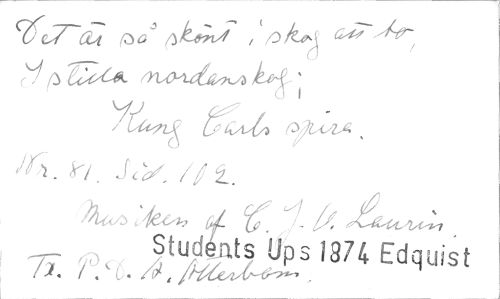 Det är så skönt i skog att bo,
I stilla nordanskog;
Kung Carls spira.
Nr. 81. Sid. 102.
Musiken af C. J. O. Laurin.
Students Ups 1874 Edquist
Tx. P. D. A. Atterbom.